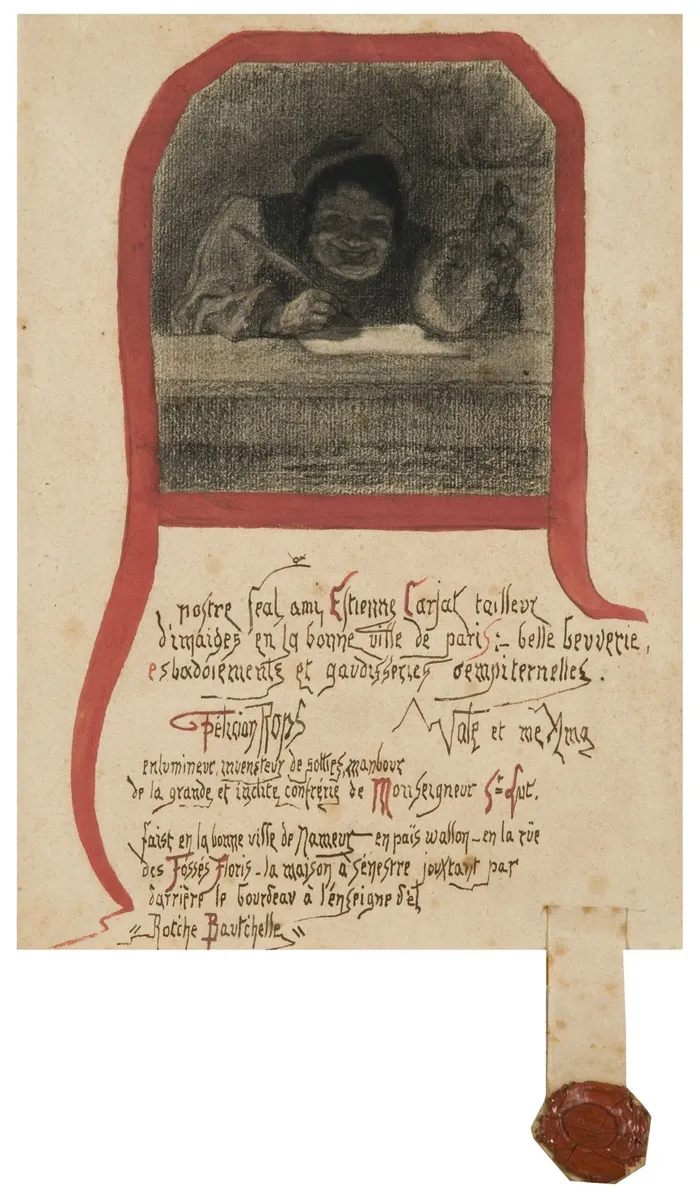 nostre feal amy Estienne Carjat tailleur
d'imaiges en la bonne ville de paris :- belle beuverie,
esbadoiements et gaudisseries sempiternelles.
Félicion Rops Vale et me Ama
enlumineur, inventeur de sotties, manbour
de la grande et inclite confrérie de Monseigneur St Lut.
faist en la bonne ville de Nameur - en païs wallon - en la rüe
des Fossés Floris - la maison à senestre jouxtant par
darrière le bourdeau à l'enseigne d'el
"Rotche Bautchelle"